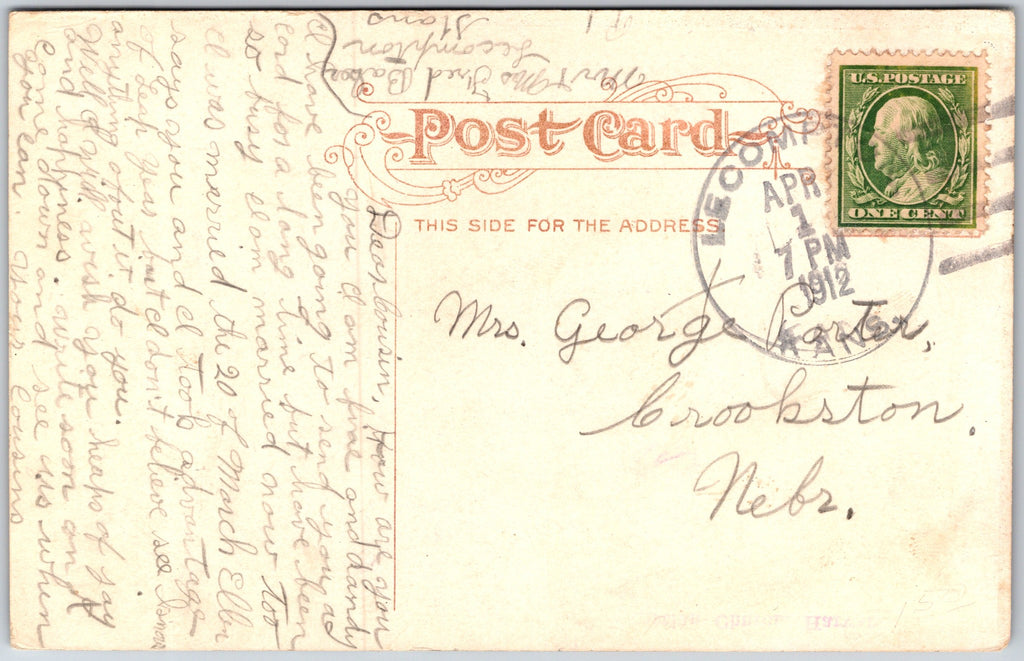 Post Card
THIS SIDE FOR THE ADDRESS
U.S. POSTAGE
ONE CENT
LECOMP
APR
1
7 PM
1912
KANS
Mrs. George Porter,
Crookston,
Nebr.
Dear Cousin, How are you
you I am fine and dandy
I have been going to send you a
card for a long time but have been
so busy I am married now too
I was married the 20 of March Elber
says you and I took advantage
of leap year but I don't believe see Ismar
anything about it do you.
Well I will wish you heaps of joy
and happiness. write soon and
come down and see us when
you can. Your Cousins
Mr & Mrs Fred Baker
Lecompton
Kans
R 1